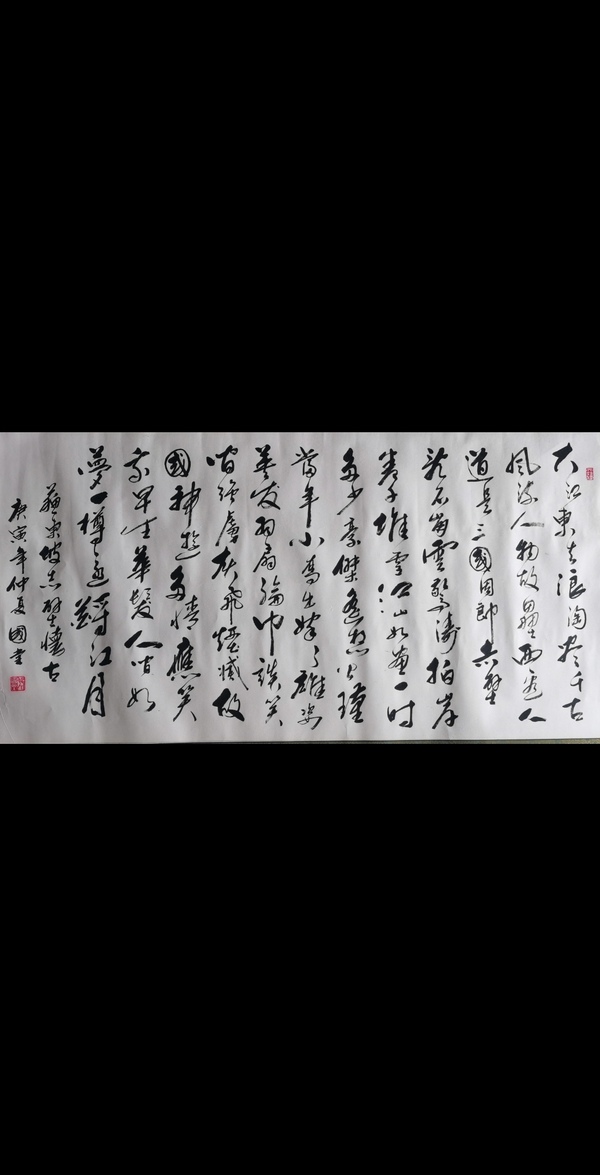 大江東去浪淘尽千古
風流人物故壘西邊人
道是三國周郎赤壁
乱石崩雲驚濤拍岸
卷千堆雪江山如畫一時
多少豪傑遙想公瑾
當年小喬初嫁了雄姿
英发羽扇綸巾談笑
間強虜灰飛煙滅故
國神遊多情應笑
我早生華髮人間如
夢一樽還酹江月
蘇東坡赤壁懷古
庚寅年仲夏國